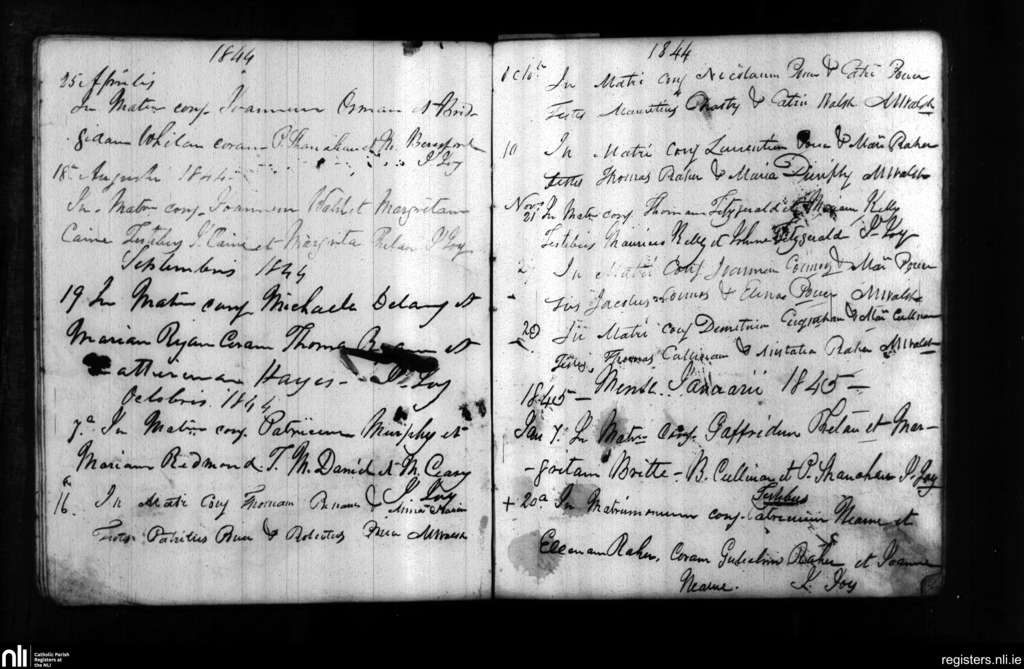 1844
25 Aprilis
In Matr conj. Joannem Osman et Brid-
gidam Whelan coram P. Shanahan et M. Beresford
J. Joy
18 Augusti 1844
In Matr conj. Joannem Walsh et Margritam
Caine Testibus J. Caine et Margrita Phelan J. Joy
Septembris 1844
19 In Matr conj Michaele Delany et
Mariam Ryan Coram Thoma et
Catherinam Hayes - J. Joy
Octobris 1844
7a In Matr conj. Patricium Murphy et
Mariam Redmond. T. McDaniel et M. Cleary
J. Joy
16a In Matri Conj Thomam &
Testes Patritius Power & Robertus Power M Walsh
1844
1 Octb In Matri Conj Nicolaum Power & Cathe Power
Testes Mauritius & Catrin Walsh M Walsh
10 In Matri Conj Laurentium Power & Mari Raher
testes Thomas Raher & Maria Dunphy M Walsh
Novr
21 In Matr conj Thomam Fitzgerald et Mariam Kelly
Testibus Mauricius Kelly et Johne Fitzgerald J. Joy
In Matri Conj Joannem Connors & Mari Power
Jacobus Connors & Elinor Power M Walsh
20 In Matri Conj Demetrium & Mari Cullinan
Testes, Thomas Cullinan & Anstatia Raher M Walsh
1845 - Mense Januarii 1845 -
Jan 7. In Matr conj. Gaffridum Phelan et Mar-
-gritam Britte - B. Cullinan et P. Shanahan J. Joy
Testibus
+ 20a In Matrimonium conj. Patricium Nearne et
Elleenam Raher, Coram Gulielmo Raher et Joanne
Nearne. J. Joy
nli Catholic Parish
Registers at
the NLI
registers.nli.ie